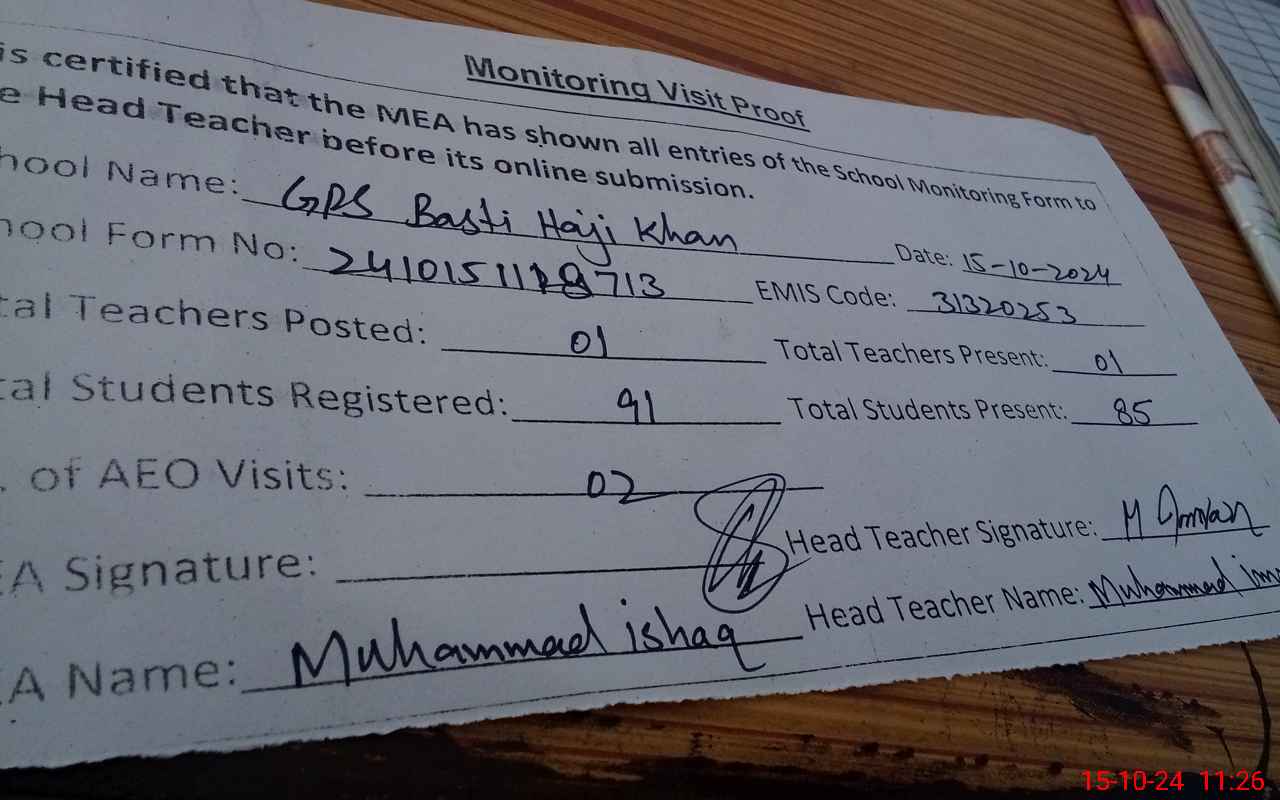 Monitoring Visit Proof
is certified that the MEA has shown all entries of the School Monitoring Form to
e Head Teacher before its online submission.
hool Name: GPS Basti Haji Khan Date: 15-10-2024
hool Form No: EMIS Code: 31320253
tal Teachers Posted: 01 Total Teachers Present: 01
tal Students Registered: 91 Total Students Present: 85
. of AEO Visits: 02
EA Signature: Head Teacher Signature: M Imran
EA Name: Muhammad ishaq Head Teacher Name: Muhammad im
15-10-24 11:26